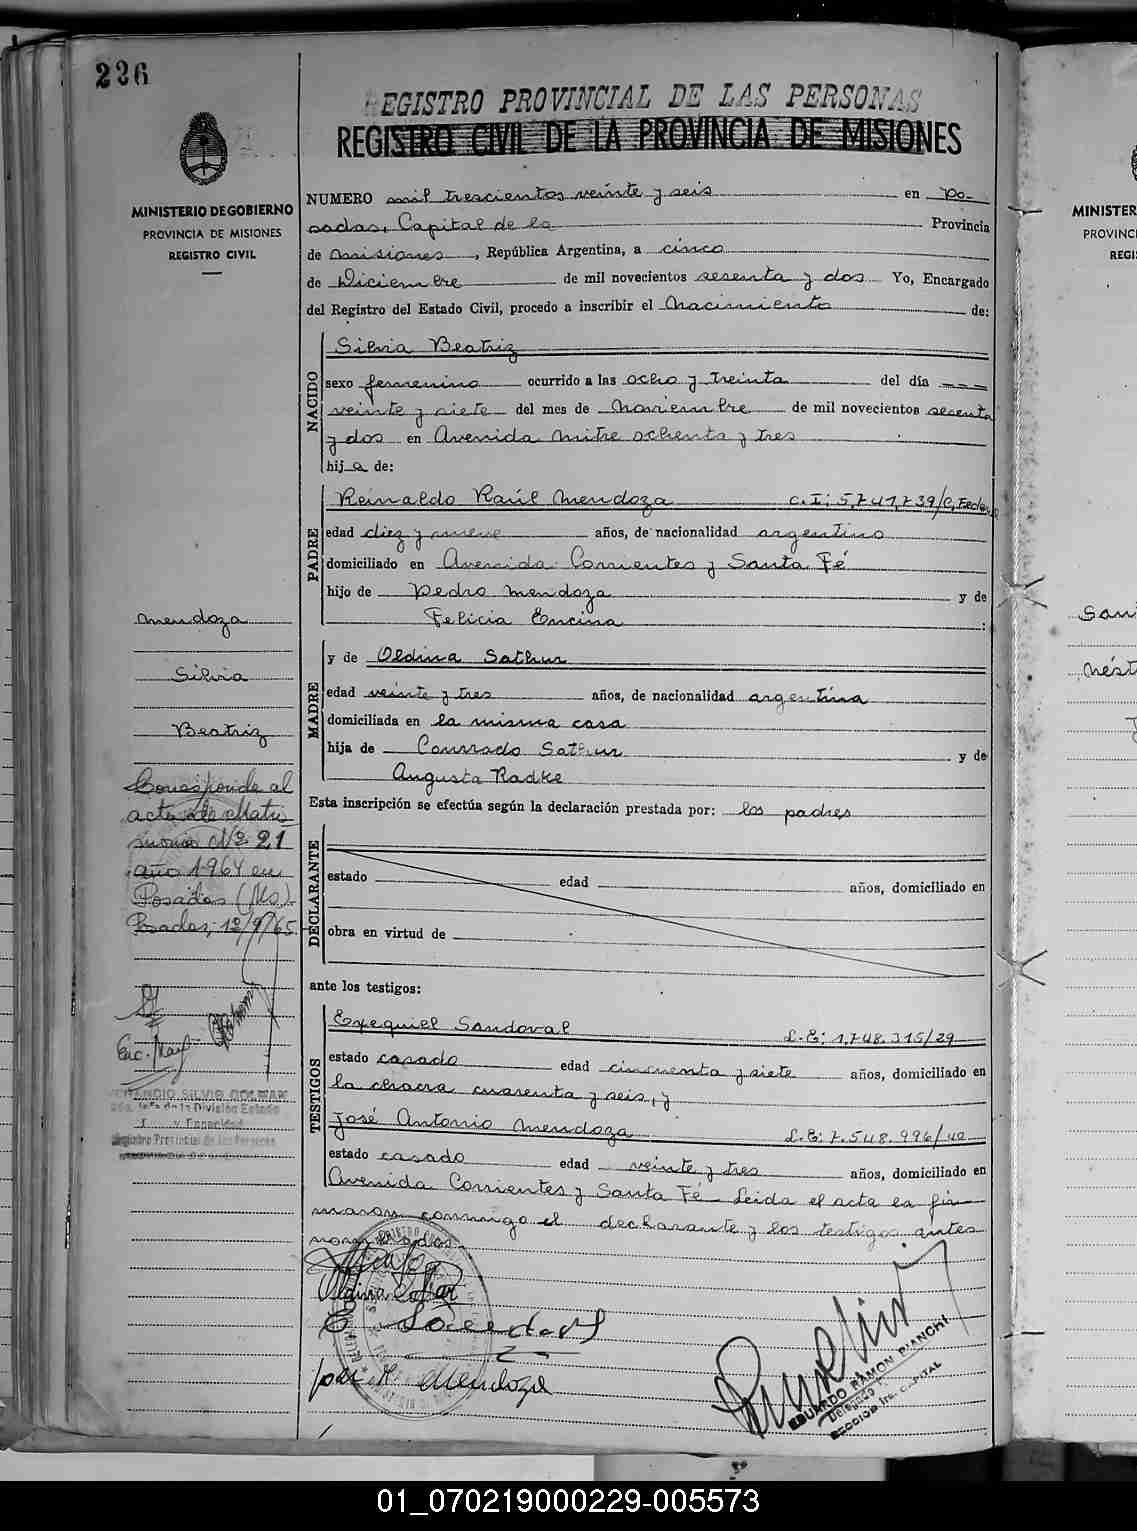 236
REGISTRO PROVINCIAL DE LAS PERSONAS
REGISTRO CIVIL DE LA PROVINCIA DE MISIONES
MINISTERIO DE GOBIERNO
PROVINCIA DE MISIONES
REGISTRO CIVIL
NUMERO mil trescientos veinte y seis en Po-
sadas, Capital de la Provincia
de Misiones, República Argentina, a cinco
de Diciembre de mil novecientos sesenta y dos Yo, Encargado
del Registro del Estado Civil, procedo a inscribir el Nacimiento de:
NACIDO
Silvia Beatriz
sexo femenino ocurrido a las ocho y treinta del día
veinte y siete del mes de Noviembre de mil novecientos sesenta
y dos en Avenida Mitre ochenta y tres
hija de:
PADRE
Reinaldo Raúl Mendoza C.I: 5,741,739/C.Federal
edad diez y nueve años, de nacionalidad argentino
domiciliado en Avenida Corrientes y Santa Fé
hijo de Pedro Mendoza y de
Felicia Encina :
MADRE
y de Oldina Sathur
edad veinte y tres años, de nacionalidad argentina
domiciliada en la misma casa
hija de Conrrado Sathur y de
Augusta Radke
Esta inscripción se efectúa según la declaración prestada por: los padres
DECLARANTE
estado edad años, domiciliado en
obra en virtud de
ante los testigos:
TESTIGOS
Exequiel Sandoval L.E: 1.748.315/29
estado casado edad cincuenta y siete años, domiciliado en
la chacra cuarenta y seis, y
José Antonio Mendoza L.E: 7.548.996/40
estado casado edad veinte y tres años, domiciliado en
Avenida Corrientes y Santa Fé - Leida el acta la fir
maron conmigo el declarante y los testigos antes
nombrados
Mendoza
EDUARDO RAMON BIANCHI
Delegado
SECCION 1ra. CAPITAL
Mendoza
Silvia
Beatriz
Corresponde al
acta de Matri
monio Nº 21
año 1964 en
Posadas (Ms).
Posadas, 12/9/65.
Enc. May
SILVIO
de la División Estado
y Capacidad
Registro Provincial de las Personas
MINISTER
PROVINCI
REGI
01_070219000229-005573